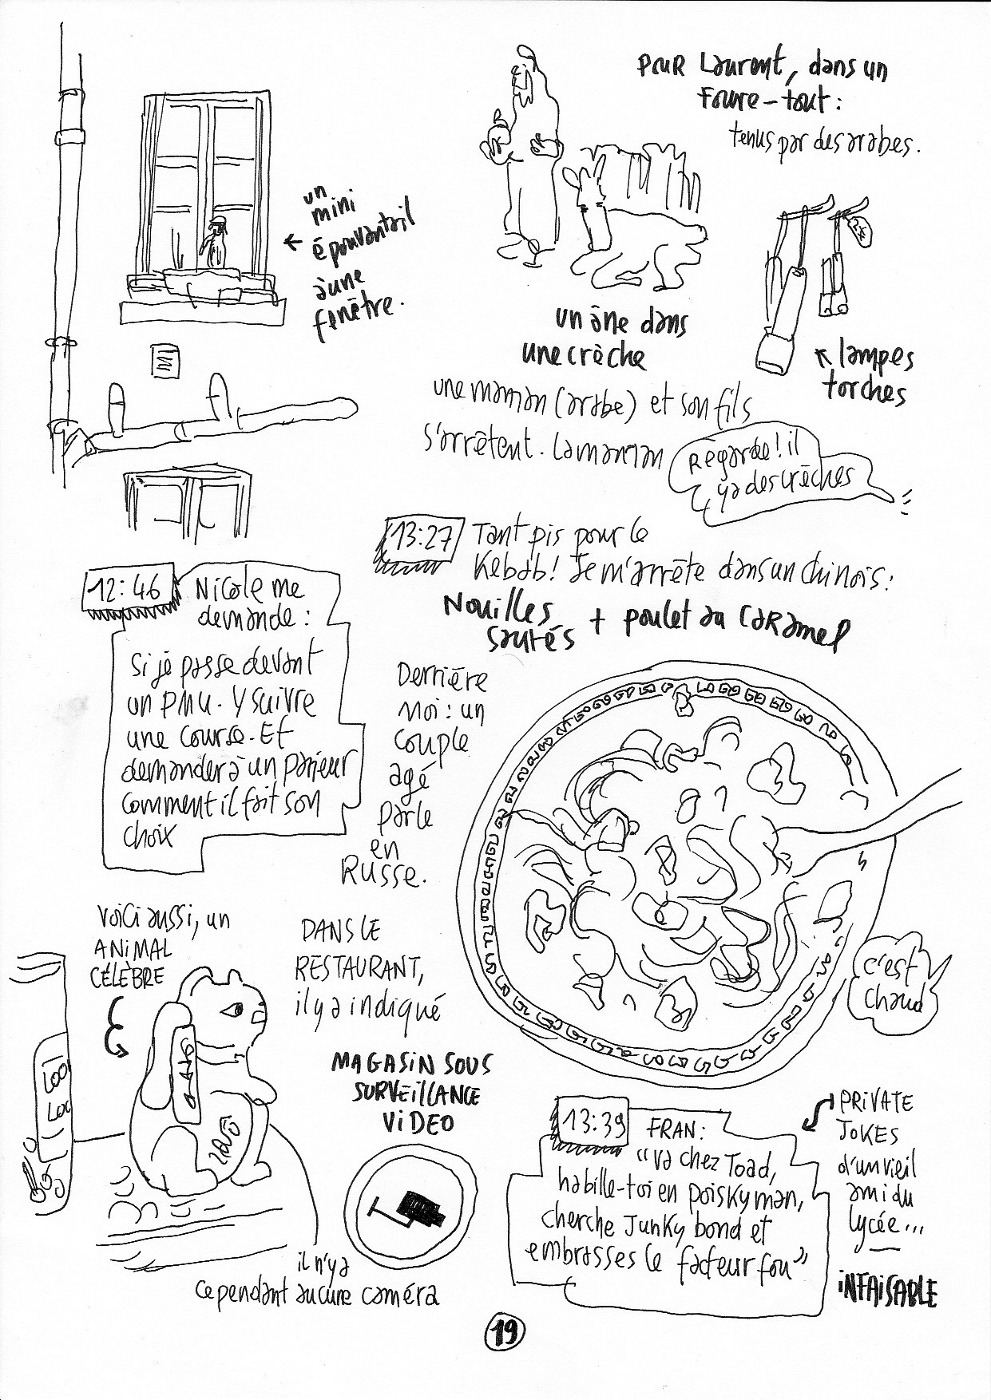 un
mini
épouvantail
à une
fenêtre.
POUR Laurent, dans un
Foure-tout:
tenus par des arabes.
un âne dans
une crèche
lampes
torches
une maman (arabe) et son fils
s'arrêtent. La maman
Regarde! il
y a des crèches
13:27 Tant pis pour le
Kebab! Je m'arrête dans un chinois:
Nouilles
sautés + poulet au CARAMEL
12:46 Nicole me
demande:
Si je passe devant
un PMU. Y suivre
une course. Et
demander à un parieur
comment il fait son
choix
Derrière
moi: un
couple
agé
parle
en
Russe.
c'est
chaud
Voici aussi, un
ANIMAL
CÉLÈBRE
DANS LE
RESTAURANT,
il y a indiqué
MAGASIN SOUS
SURVEILLANCE
VIDEO
il n'y a
cependant aucune caméra
13:39 FRAN:
"Va chez Toad,
habille-toi en poiskyman,
cherche Junky bond et
embrasses le facteur fou"
PRIVATE
JOKES
d'un vieil
ami du
lycée...
INFAISABLE
19